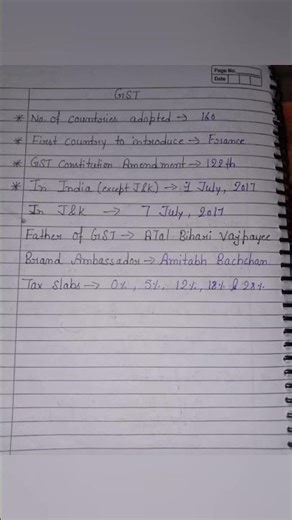 Page No.
Date
GST
* No. of countries adopted → 160
* First country to introduce → France
* GST Constitution Amendment → 122th
* In India (except J&K) → 1 July, 2017
In J&K → 7 July, 2017
Father of GST → ATal Bihari Vajpayee
Brand Ambassador → Amitabh Bachchan
Tax Slabs → 0%, 5%, 12%, 18% & 28%